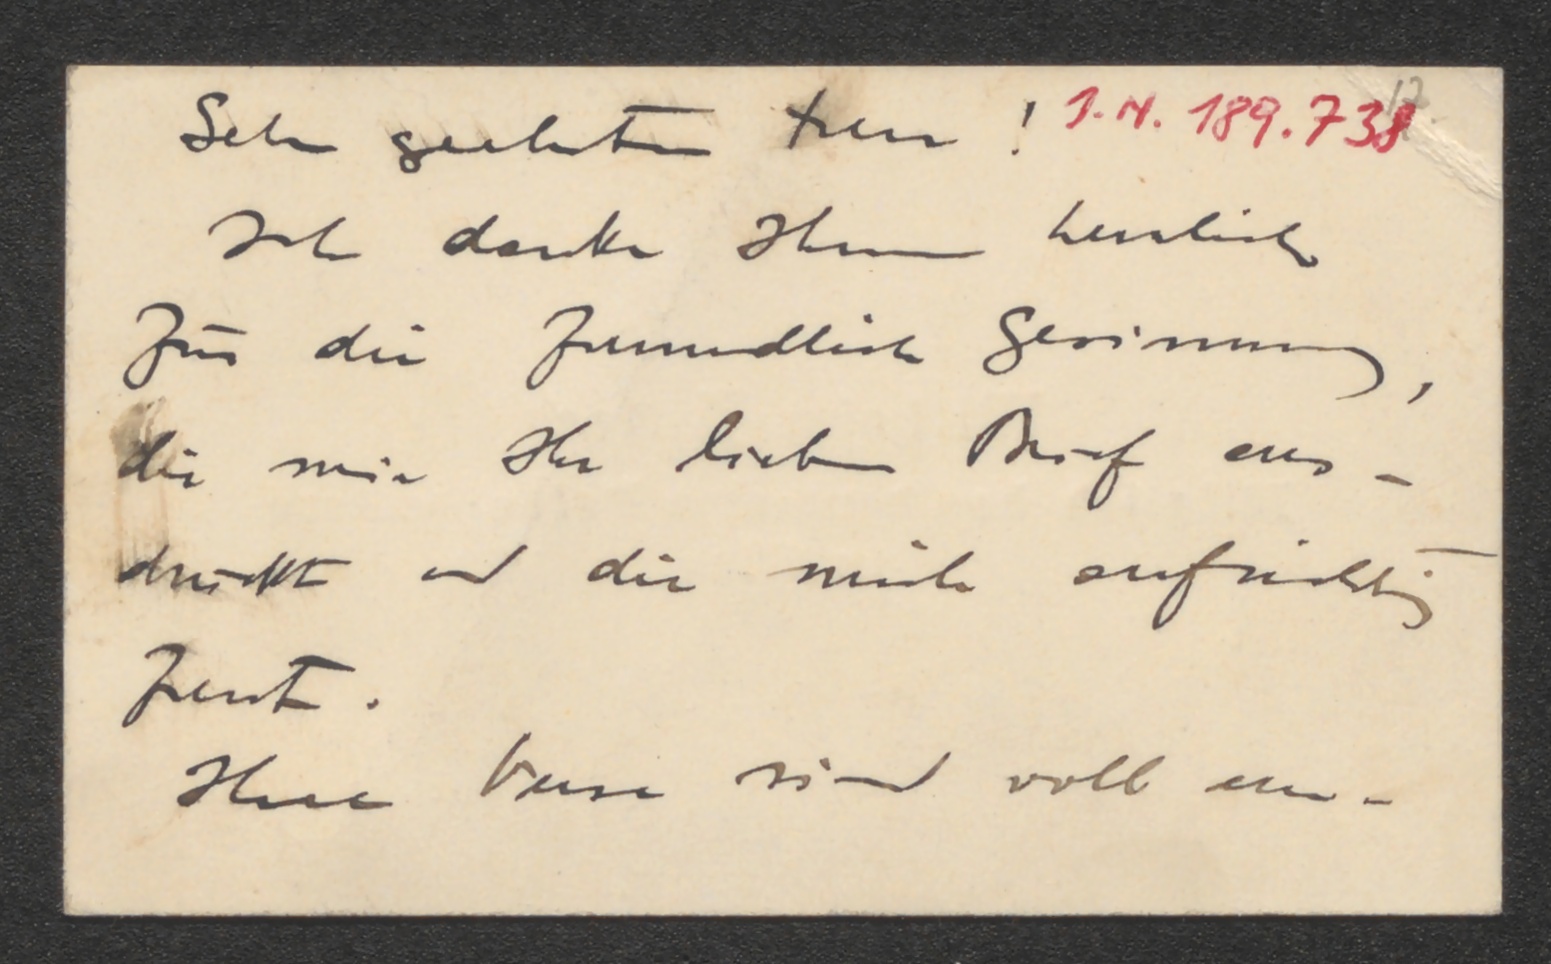 Sehr geehrter Herr ! I.N. 189.738
Ich danke Ihnen herzlich
für die freundliche Gesinnung,
die mir Ihr lieber Brief aus-
drückt und die mich aufrichtig
freut.
Ihre Verse sind voll